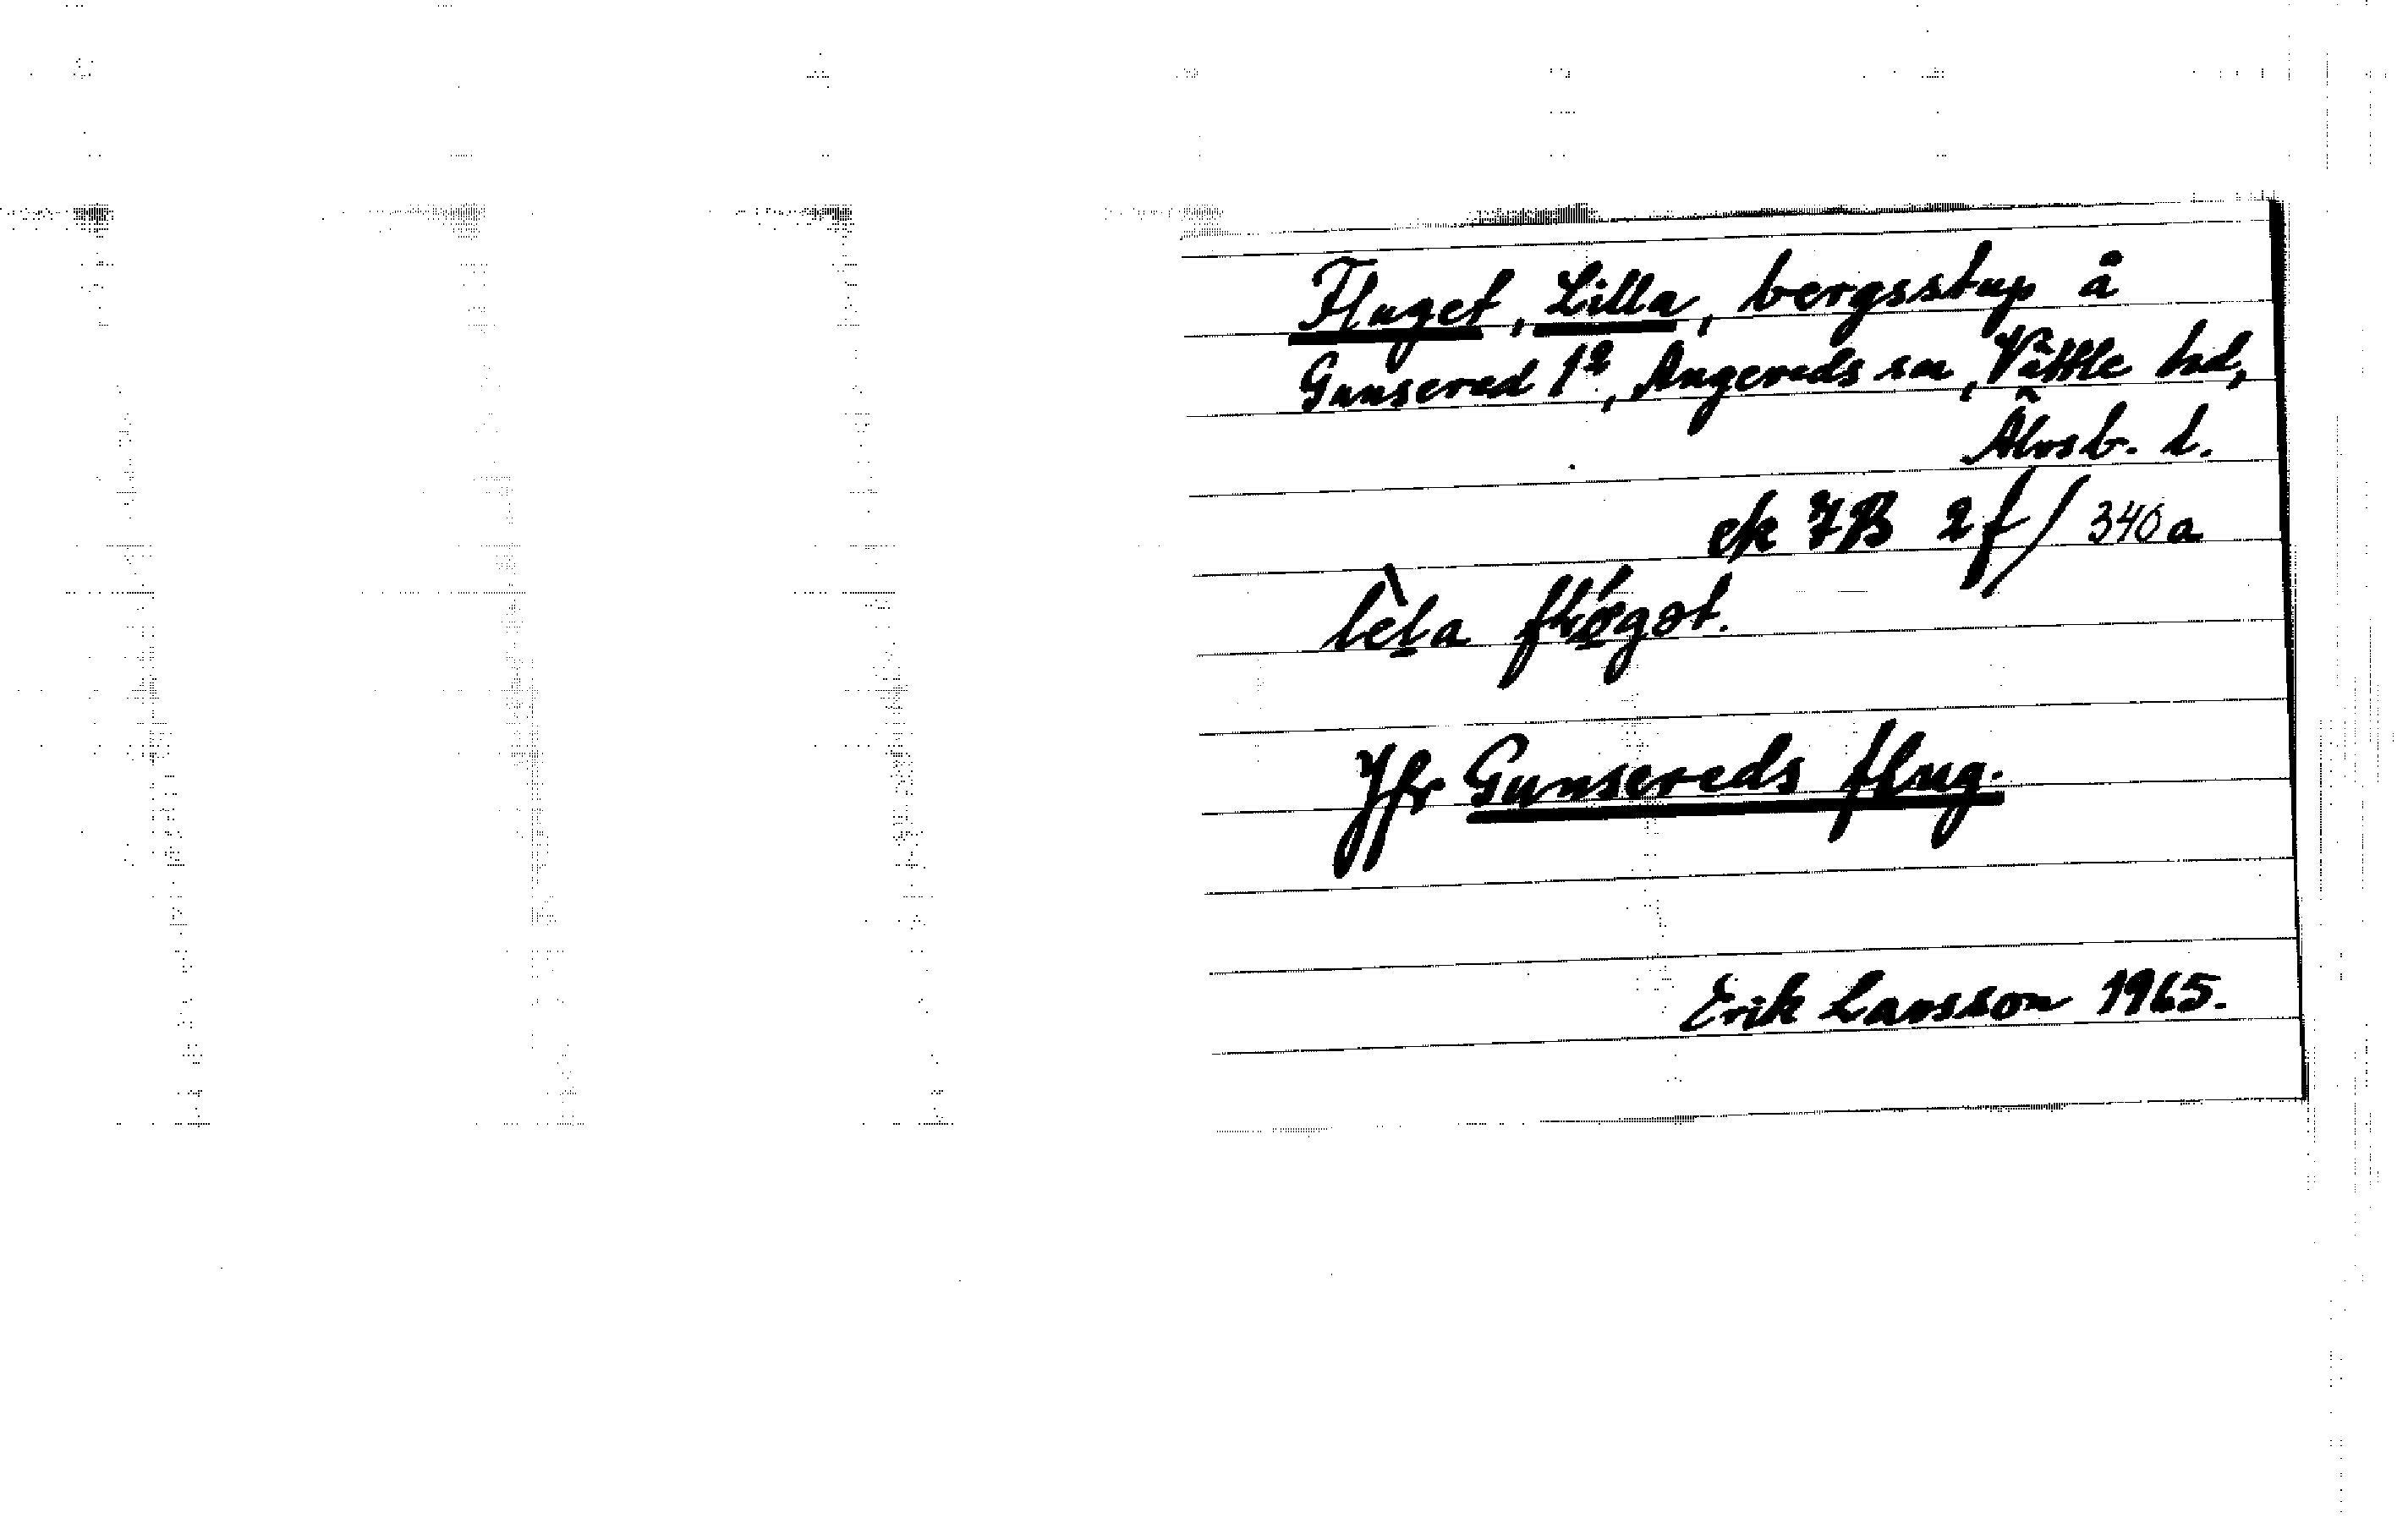 Fluget, Lilla, bergsstup å
Gunsered 1², Angereds sn, Vättle hd,
Älvsb. l.
ek 7B 2f/340a
lèla
Jfr Gunsereds flug.
Erik Larsson 1965.